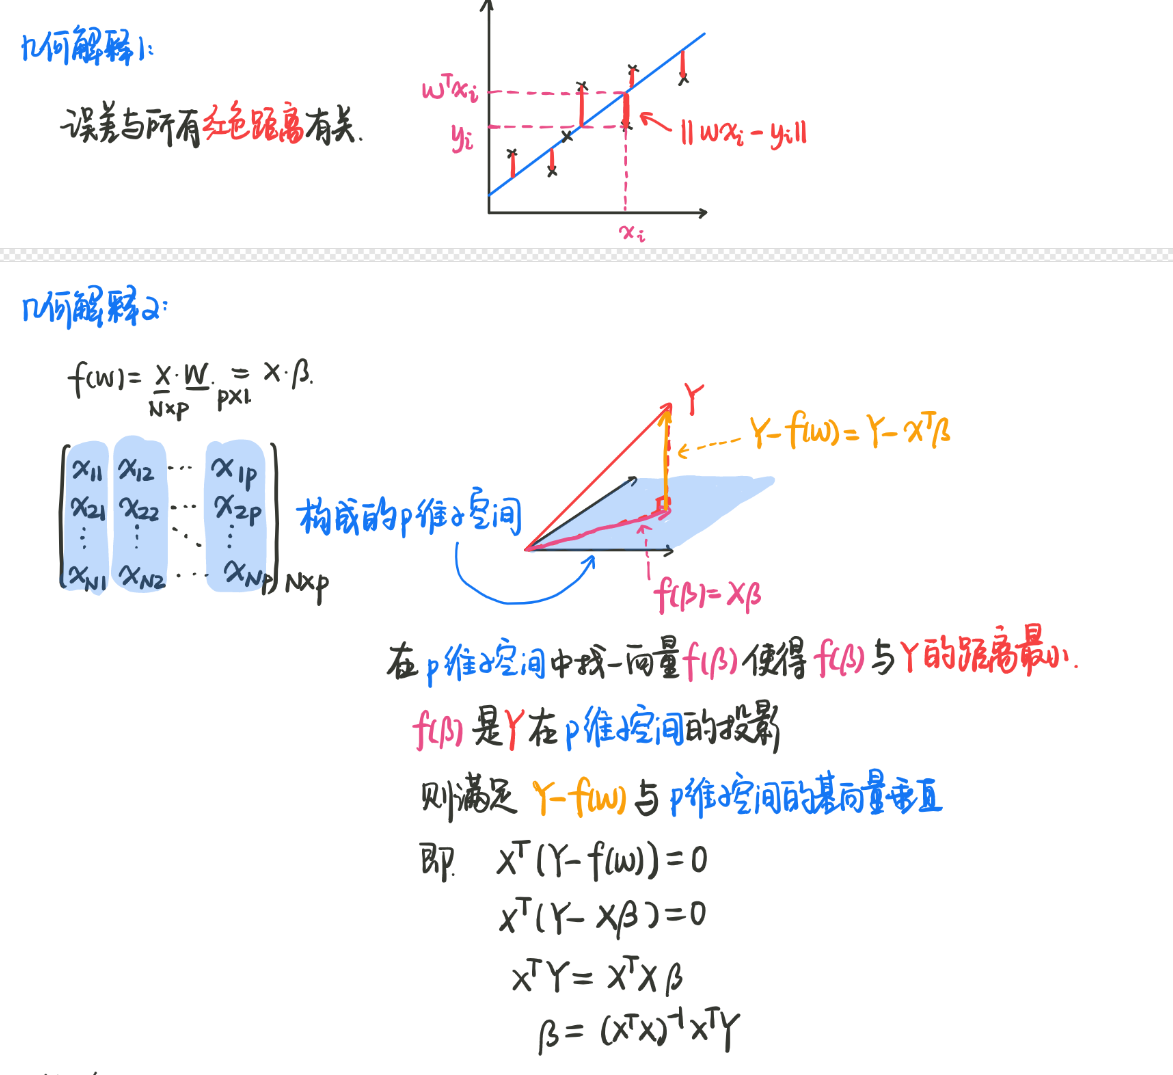 几何解释1:
误差与所有红色距离有关.
wᵀxᵢ
yᵢ
||wxᵢ-yᵢ||
xᵢ
几何解释2:
f(w)= X·W = X·β.
N×p p×1
x₁₁ x₁₂ ··· x₁p
x₂₁ x₂₂ ··· x₂p
⋮ ⋮ ⋱ ⋮
xN₁ xN₂ ··· xNp N×p
构成的p维子空间
Y
Y-f(w)=Y-xᵀβ
f(β)=Xβ
在p维子空间中找一向量f(β)使得f(β)与Y的距离最小.
f(β)是Y在p维子空间的投影
则满足 Y-f(w)与p维子空间的基向量垂直
即. Xᵀ(Y-f(w))=0
Xᵀ(Y-Xβ)=0
XᵀY=XᵀXβ
β=(XᵀX)⁻¹XᵀY